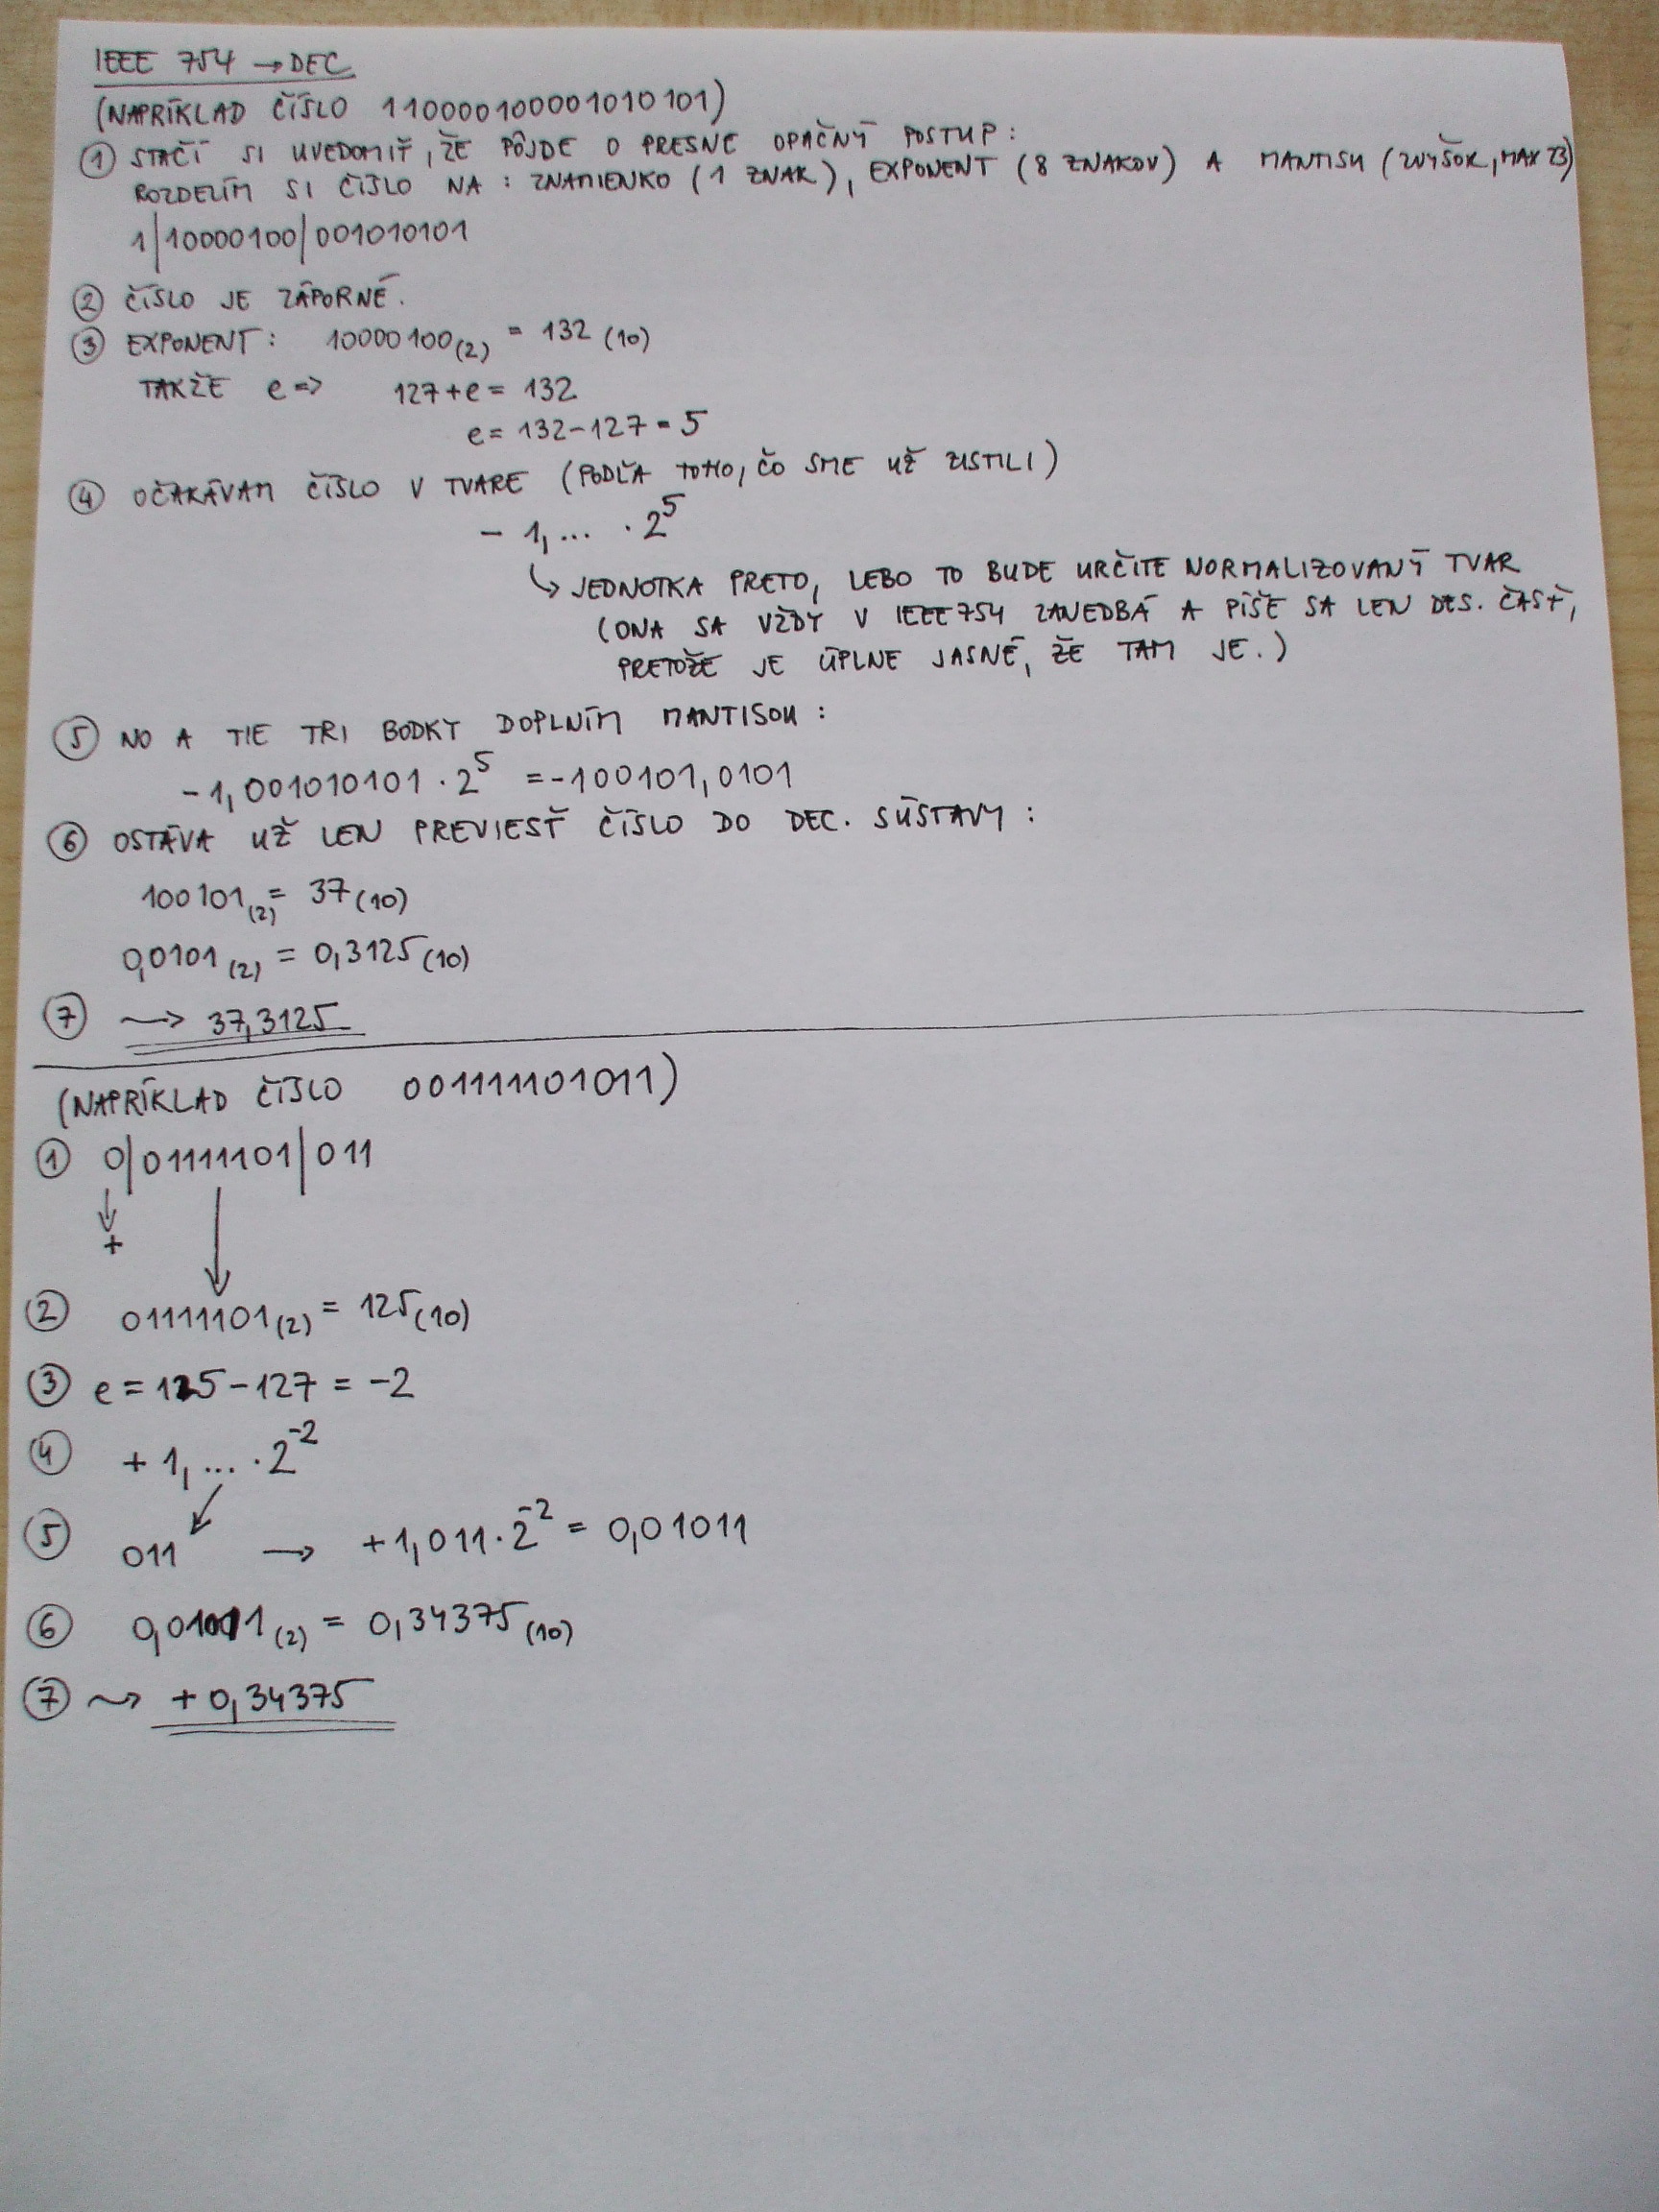 IEEE 754 → DEC
(NAPRÍKLAD ČÍSLO 110000100001010101)
① STAČÍ SI UVEDOMIŤ, ŽE PÔJDE O PRESNE OPAČNÝ POSTUP:
ROZDELÍM SI ČÍSLO NA: ZNAMIENKO (1 ZNAK), EXPONENT (8 ZNAKOV) A MANTISU (ZVYŠOK, MAX 23)
1|10000100|001010101
② ČÍSLO JE ZÁPORNÉ.
③ EXPONENT: 10000100(2) = 132 (10)
TAKŽE e => 127+e = 132
e = 132-127 = 5
④ OČAKÁVAM ČÍSLO V TVARE (PODĽA TOHO, ČO SME UŽ ZISTILI)
- 1,... · 2^5
↳ JEDNOTKA PRETO, LEBO TO BUDE URČITE NORMALIZOVANÝ TVAR
(ONA SA VŽDY V IEEE754 ZANEDBÁ A PÍŠE SA LEN DES. ČASŤ,
PRETOŽE JE ÚPLNE JASNÉ, ŽE TAM JE.)
⑤ NO A TIE TRI BODKY DOPLNÍM MANTISOU:
-1,001010101 · 2^5 = -100101,0101
⑥ OSTÁVA UŽ LEN PREVIESŤ ČÍSLO DO DEC. SÚSTAVY:
100101(2) = 37(10)
0,0101(2) = 0,3125(10)
⑦ → 37,3125
(NAPRÍKLAD ČÍSLO 001111101011)
① 0|01111101|011
↓
+
② 01111101(2) = 125(10)
③ e = 125-127 = -2
④ + 1,... · 2^-2
⑤ 011 → +1,011 · 2^-2 = 0,01011
⑥ 0,01011(2) = 0,34375(10)
⑦ → +0,34375